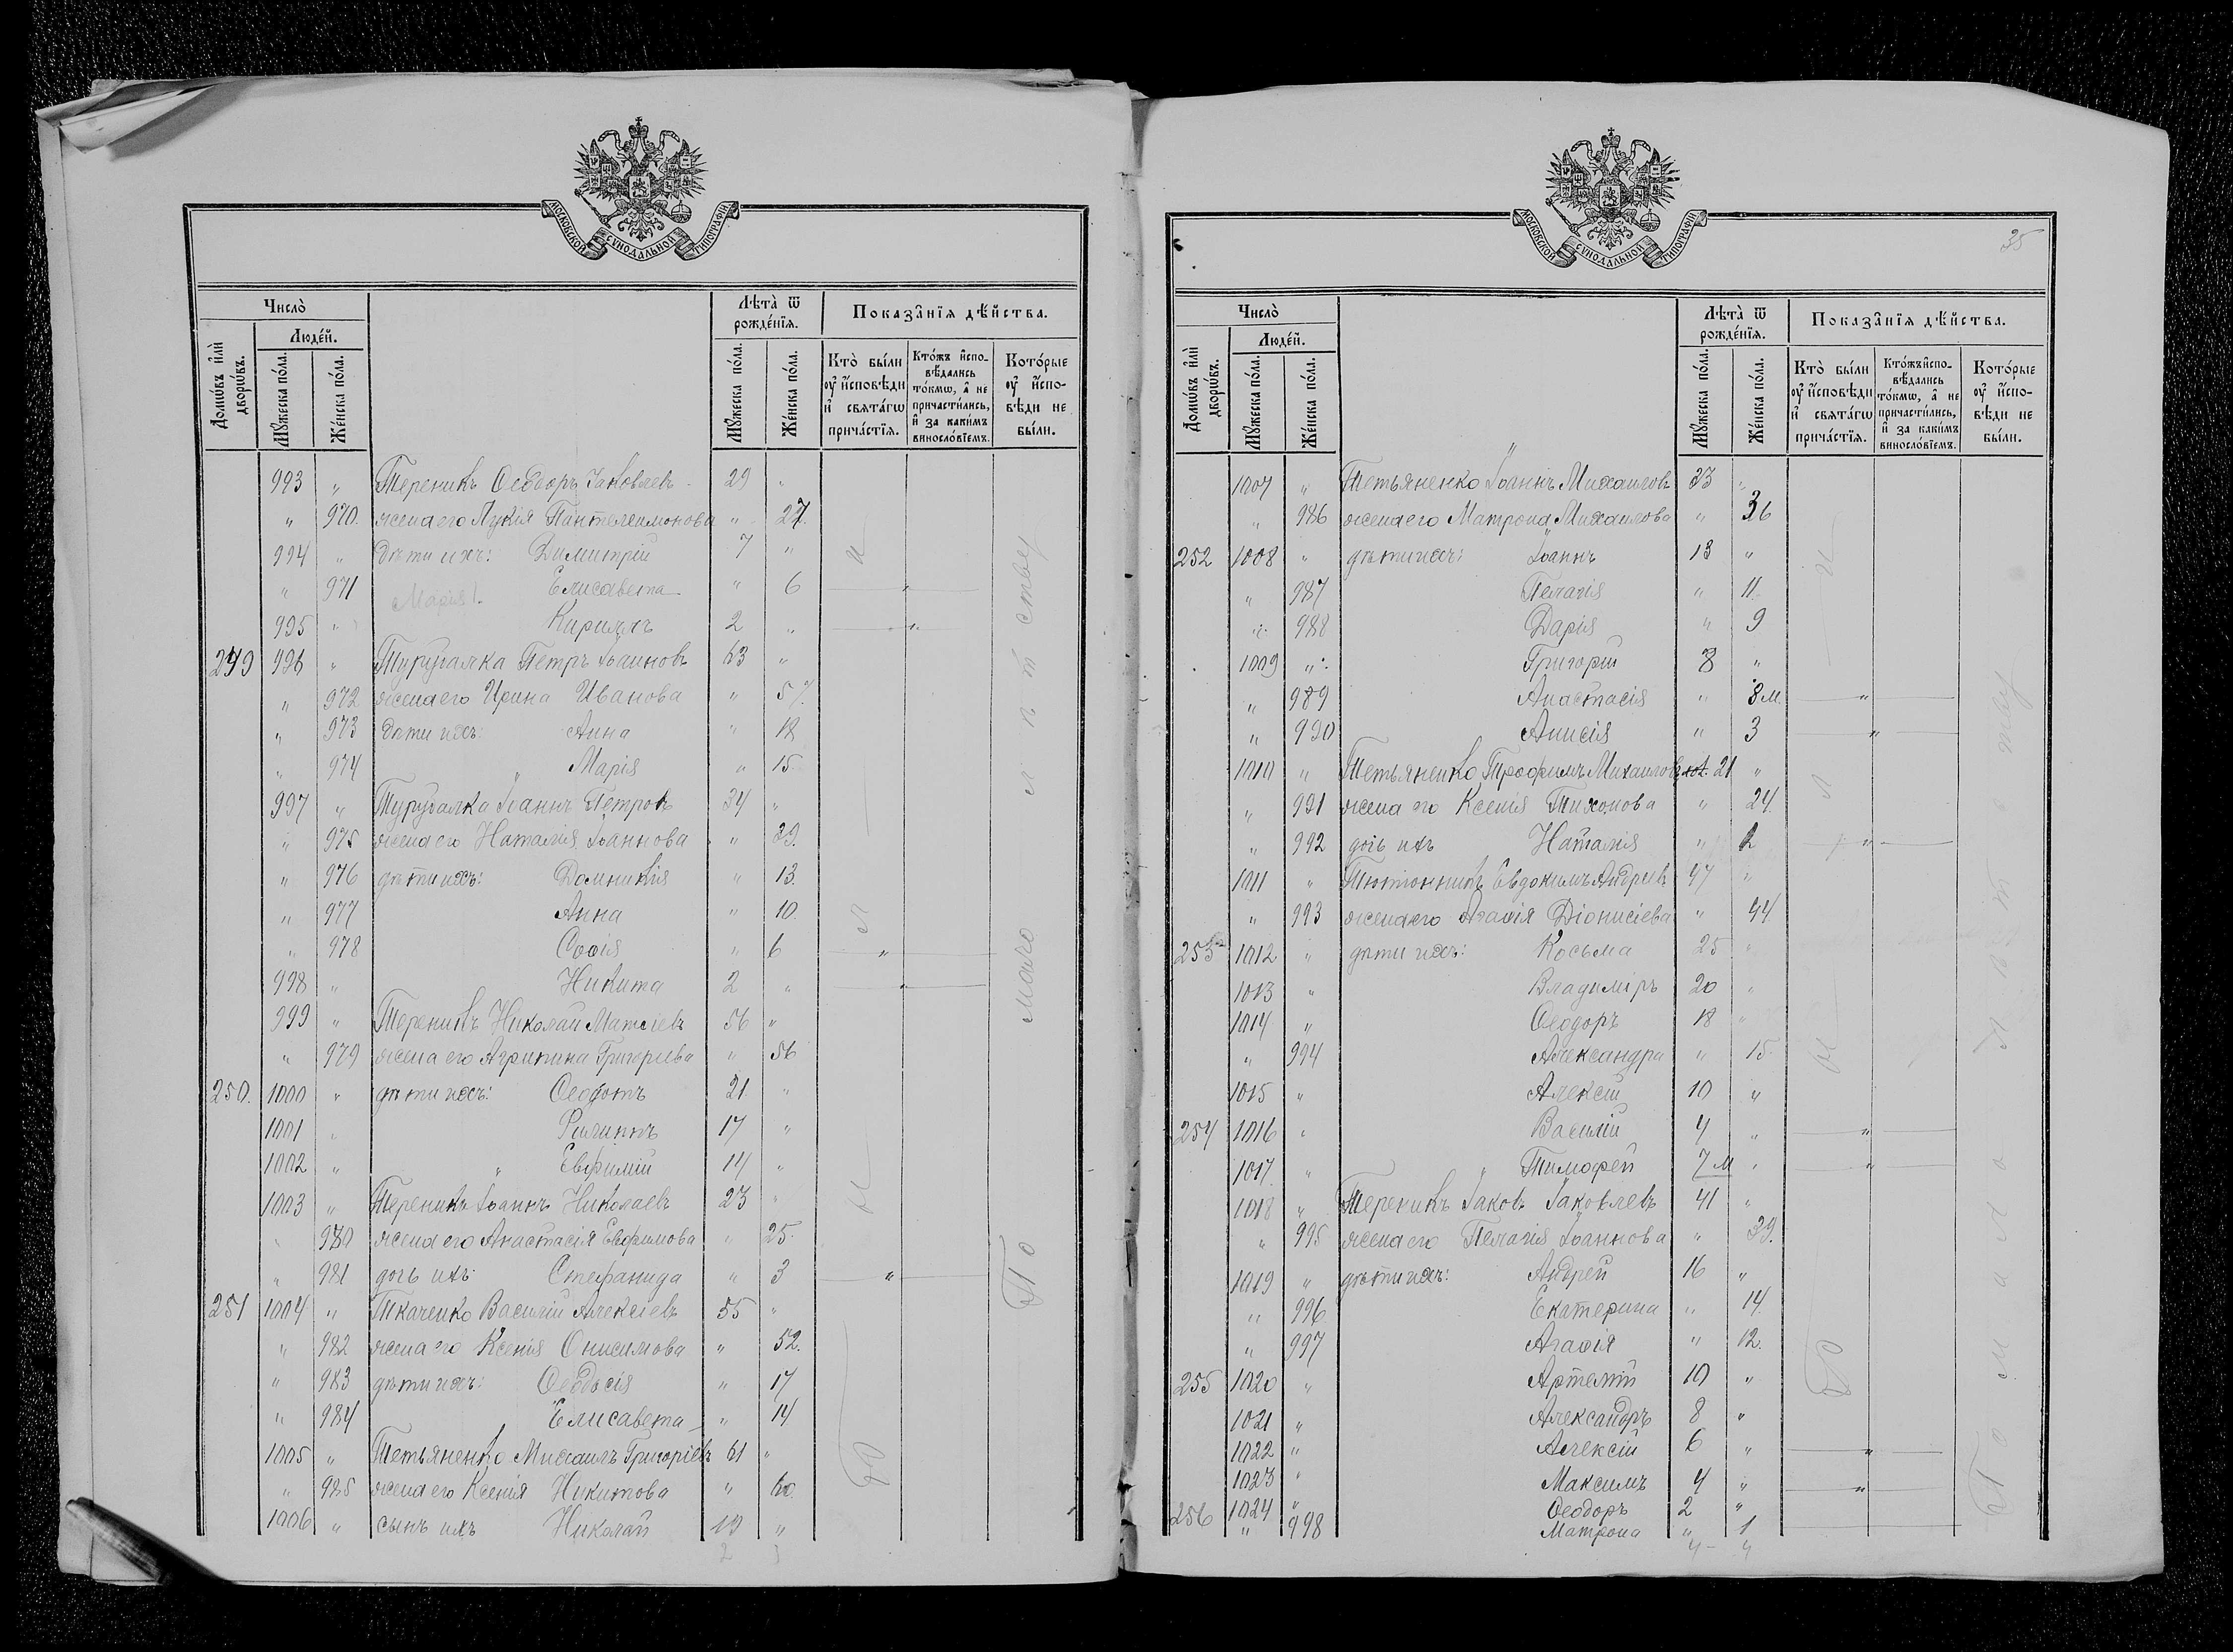 МОСКОВСКОЙ СУНОДАЛЬНОЙ ТИПОГРАФІИ
Число̀
Люде́й.
Домѡ́въ и҆лѝ дворѡ́въ.
Мꙋ́жеска по́ла.
Же́нска по́ла.
Лѣта̀ ѿ рожде́нїѧ.
Мꙋ́жеска по́ла.
Же́нска по́ла.
Показа̑нїѧ дѣ́йства.
Кто̀ бы́ли ᲂу҆ и҆́сповѣди и҆ свѧта́гѡ прича́стїѧ.
Кто́жъ и҆спо-вѣ́дались то́кмѡ, а҆ не причасти́лись, и҆ за каки́мъ винослѡ́вїемъ.
Кото́рые ᲂу҆ и҆́спо-вѣди не бы́ли.
993 „ Тереникъ Ѳеодоръ Іаковлевъ 29 „
„ 970. жена его Лукія Пантелеимонова „ 27.
994 „ дѣти ихъ: Димитрій 7 „
„ 971 Марія 1. Елисавета „ 6 „
995 „ Кириллъ 2 „ „
249 996 „ Туругалка Петръ Іоанновъ 63 „
„ 972 жена его Ирина Иванова „ 57.
„ 973 дѣти ихъ: Анна „ 18
„ 974 „ Марія „ 15.
997 „ Туругалка Іоаннъ Петровъ 34 „
„ 975 жена его Наталія Іоаннова „ 29.
„ 976 дѣти ихъ: Домникія „ 13.
„ 977 Анна „ 10.
„ 978 Софія „ 6 „
998 „ Никита 2 „ „
999 „ Тереникъ Николай Матѳіевъ 56 „
„ 979 жена его Агрипина Григорьева „ 56
250. 1000 „ дѣти ихъ: Ѳеодотъ 21 „
1001 „ Филиппъ 17 „
1002 „ „ Евфимій 14 „
1003 „ Тереникъ Іоаннъ Николаевъ 23 „
„ 980 жена его Анастасія Евфимова „ 25.
„ 981 дочь ихъ: Стефанида „ 3 „
251 1004 „ Ткаченко Василій Алексіевъ 55 „
„ 982 жена его Ксенія Онисимова „ 52.
„ 983 дѣти ихъ: Ѳеодосія „ 17
„ 984 Елисавета „ 14
1005 „ Тетьяненко Михаилъ Григоріевъ 61 „
„ 985 жена его Ксенія Никитова „ 60.
1006 „ сынъ ихъ Николай 19 „
По малолѣтству
35
МОСКОВСКОЙ СУНОДАЛЬНОЙ ТИПОГРАФІИ
Число̀
Люде́й.
Домѡ́въ и҆лѝ дворѡ́въ.
Мꙋ́жеска по́ла.
Же́нска по́ла.
Лѣта̀ ѿ рожде́нїѧ.
Мꙋ́жеска по́ла.
Же́нска по́ла.
Показа̑нїѧ дѣ́йства.
Кто̀ бы́ли ᲂу҆ и҆́сповѣди и҆ свѧта́гѡ прича́стїѧ.
Кто́жъ и҆спо-вѣ́дались то́кмѡ, а҆ не причасти́лись, и҆ за каки́мъ винослѡ́вїемъ.
Кото́рые ᲂу҆ и҆́спо-вѣди не бы́ли.
1007 „ Тетьяненко Іоаннъ Михаиловъ 33 „
„ 986 жена его Матрона Михаилова „ 36
252 1008 „ дѣти ихъ: Іоаннъ 13 „
„ 987 Пелагія „ 11
„ 988 Дарія „ 9
1009 „ Григорій 8 „
„ 989 Анастасія „ 8 м. „
„ 990 Анисія „ 3 „
1010 „ Тетьяненко Трофимъ Михаиловъ 21 „
„ 991 жена его Ксенія Тихонова „ 24.
„ 992 дочь ихъ Наталія „ 2 „
1011 „ Тютюнникъ Евдокимъ Андреевъ 47 „
„ 993 жена его Агафія Діонисіева „ 44
253 1012 „ дѣти ихъ: Косьма 25 „
1013 „ Владиміръ 20 „
1014 „ Ѳеодоръ 18 „
„ 994 Александра „ 15.
1015 „ Алексій 10 „
254 1016 „ Василій 4 „ „
1017. „ „ Тимофей 7 м „ „
1018 „ Тереникъ Іаковъ Іаковлевъ 41 „
„ 995 жена его Пелагія Іоаннова „ 39.
1019 „ дѣти ихъ: Андрей 16 „
„ 996 Екатерина „ 14.
„ 997 Агафія „ 12.
255 1020 „ Артемій 10 „
1021 „ Александръ 8 „
1022 „ Алексій 6 „ „
1023 „ Максимъ 4 „ „
256 1024 „ Ѳеодоръ 2 „
„ 998 Матрона „ 1
По малолѣтству